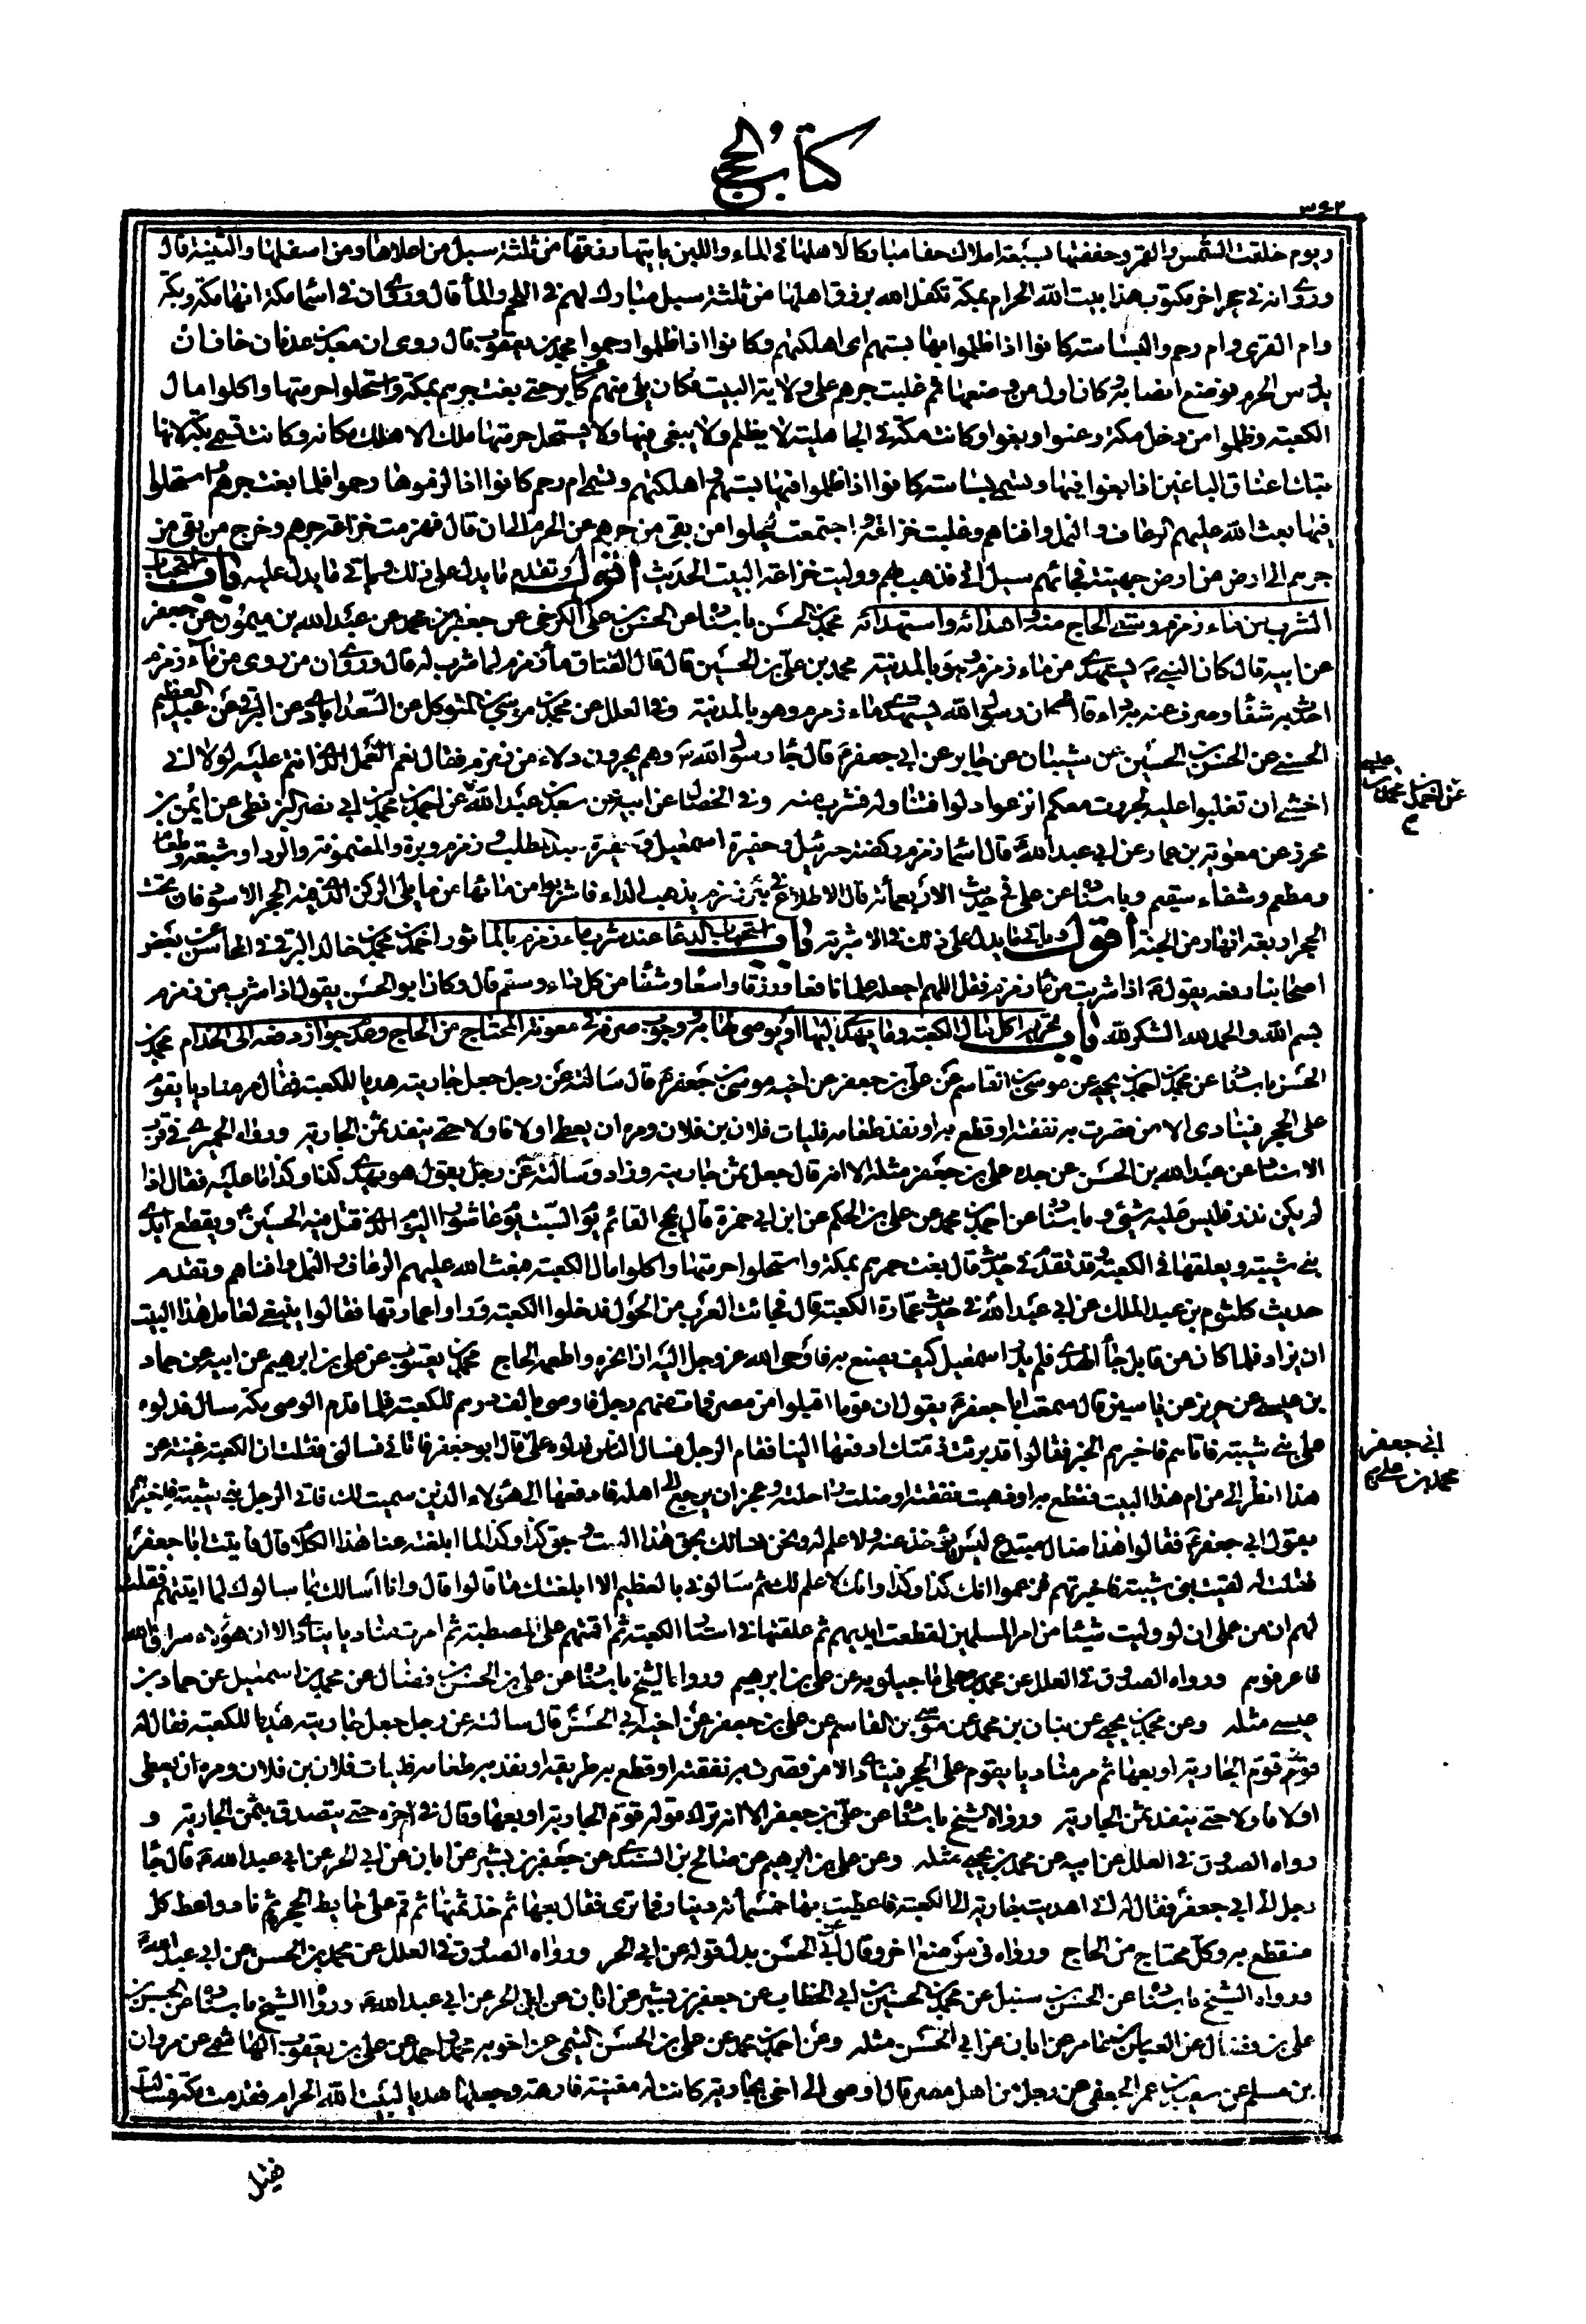 كتاب الحج
٣٤٢
ويوم خلقت الشمس والقمر وحففتها بسبعة املاك حفا مبارك لاهلها في الماء واللبن ياتيها رزقها من ثلثة سبل من اعلاها ومن اسفلها والثنية قال
وروى انه في حجر اخر مكتوب هذا بيت الله الحرام بمكة تكفل الله برزق اهلها من ثلثة سبل مبارك لهم في اللحم والماء قال وروى ان في اسما مكة انها مكة وبكة
وام القرى وام رحم والبساسة كانوا اذا ظلموا بها بستهم اى اهلكتهم وكانوا اذا ظلموا رحموا محمد بن يعقوب قال روى ان معد بن عدنان خاف ان
يدرس الحرم فوضع انصابه وكان اول من وضعها ثم غلبت جرهم على ولاية البيت فكان يلي منهم كابر حتى بغت جرهم بمكة واستحلوا حرمتها واكلوا مال
الكعبة وظلموا من دخل مكة وعتوا وبغوا وكانت مكة في الجاهلية لا يظلم ولا يبغى فيها ولا يستحل حرمتها ملك الا هلك مكانه وكانت تسمى بكة لانها
تبك اعناق الباغين اذا بغوا فيها وتسمى بساسة كانوا اذا ظلموا فيها بستهم واهلكتهم وتسمى ام رحم كانوا اذا لزموها رحموا فلما بغت جرهم واستحلوا
فيها بعث الله عليهم الرعاف والنمل وافناهم وغلبت خزاعة و اجتمعت ليجلوا من بقى من جرهم عن الحرم الى ان قال فهزمت خزاعة جرهم وخرج من بقى من
جرهم الى ارض من ارض جهينة فجائهم سيل اتي فذهب بهم ووليت خزاعة البيت الحديث اقول وتقدم ما يدل على ذلك وياتي ما يدل عليه باب استحباب
الشرب من ماء زمزم وسقى الحاج منه واهدائه واستهدائه محمد بن الحسن باسناده عن الحسن بن علي الكرخي عن جعفر بن محمد عن عبد الله بن ميمون عن جعفر
عن ابيه قال كان النبي ص يستهدى من ماء زمزم وهو بالمدينة محمد بن علي بن الحسين قال قال الصادق ماء زمزم لما شرب له قال وروى ان من روى من ماء زمزم
احدث به شفاء وصرف عنه داء قال وكان رسول الله يستهدى ماء زمزم وهو بالمدينة وفي العلل عن محمد بن موسى بن المتوكل عن السعدابادي عن البرقي عن عبد العظيم
الحسني عن الحسن بن الحسين عن شيبان عن جابر عن ابي جعفر ع قال جاء رسول الله ص وهم يجرون دلاء من زمزم فقال نعم العمل الذي انتم عليه لولا اني
اخشى ان تغلبوا عليه لجررت معكم انزعوا دلوا فتناوله فشرب منه وفي الخصال عن ابيه عن سعد بن عبد الله عن احمد بن محمد بن ابي نصر البزنطي عن ايمن بن
محرز عن معوية بن عمار عن ابي عبد الله ع قال اسماء زمزم ركضة جبرئيل وحفيرة اسمعيل وحفيرة عبد المطلب وزمزم وبرة والمضمونة والرواء وشبعة وطعام
ومطعم وشفاء سقيم وباسناده عن علي ع في حديث الاربعمأة قال الاطلاع في بئر زمزم يذهب الداء فاشربوا من مائها مما يلي الركن الذي فيه الحجر الاسود فان تحت
الحجر اربعة انهار من الجنة اقول وياتي ما يدل على ذلك في الاشربة باب استحباب الدعاء عند شرب ماء زمزم بالماثور احمد بن محمد بن خالد البرقي في المحاسن عن بعض
اصحابنا رفعه يقول اذا شربت من ماء زمزم فقل اللهم اجعله علما نافعا ورزقا واسعا وشفاء من كل داء وسقم قال وكان ابو الحسن يقول اذا شرب من زمزم
بسم الله والحمد لله الشكر لله باب تحريم اكل مال الكعبة وما يهدى اليها او يوصى لها به ووجوب صرفه في معونة المحتاج من الحاج وعدم جواز دفعه الى الخدام محمد بن
الحسن باسناده عن محمد بن احمد بن يحيى عن موسى بن القاسم عن علي بن جعفر عن اخيه موسى بن جعفر ع قال سالته عن رجل جعل جاريته هديا للكعبة فقال مر مناديا يقوم
على الحجر فينادى الا من قصرت به نفقته او قطع به او نفذ طعامه فليات فلان بن فلان ومره ان يعطى اولا فاولا حتى ينفد ثمن الجارية ورواه الحميرى في قرب
الاسناد عن عبد الله بن الحسن عن جده علي بن جعفر مثله الا انه قال جعل ثمن جاريته وزاد وسالته عن رجل يقول هو يهدى كذا وكذا ما عليه فقال اذا
لم يكن نذر فليس عليه شئ وباسناده عن احمد بن محمد عن علي بن الحكم عن ابن ابي حمزة قال يخرج القائم يوم السبت يوم عاشورا اليوم الذي قتل فيه الحسين ع ويقطع ايدى
بني شيبة ويعلقها في الكعبة وقد تقدم في حديث قال بغت جرهم بمكة واستحلوا حرمتها واكلوا مال الكعبة فبعث الله عليهم الرعاف والنمل وافناهم وتقدم
حديث كلثوم بن عبد الملك عن ابي عبد الله ع في حديث عمارة الكعبة قال فجائت العرب من الحول فدخلوا الكعبة وراوا عمارتها فقالوا ينبغي لعامل هذا البيت
ان يزاد فلما كان من قابل جاء الهدى فلم يدر اسمعيل كيف يصنع به فاوحى الله عز وجل اليه ان انحره واطعمه الحاج محمد بن يعقوب عن علي بن ابرهيم عن ابيه عن حماد
بن عيسى عن حريز عن ياسين قال سمعت ابا جعفر ع يقول ان قوما اقبلوا من مصر فمات منهم رجل فاوصى بالف درهم للكعبة فلما قدم الوصى مكة سال فدلوه
على بني شيبة فاتاهم فاخبرهم الخبر فقالوا قد برئت ذمتك ادفعها الينا فقام الرجل فسال الناس فدلوه على قال ابو جعفر فاتاني فسالني فقلت ان الكعبة غنية عن
هذا انظر الى من ام هذا البيت فقطع به او ذهبت نفقته او ضلت راحلته وعجز ان يرجع الى اهله فادفعها الى هؤلاء الذين سميت لك فاتى الرجل بني شيبة فاخبرهم
بقول ابي جعفر ع فقالوا هذا ضال مبتدع ليس يؤخذ عنه ولا علم له ونحن نسالك بحق هذا البيت وبحق كذا وكذا لما ابلغته عنا هذا الكلام قال فاتيت ابا جعفر
فقلت له لقيت بني شيبة فاخبرتهم فزعموا انك كذا وكذا وانك لا علم لك ثم سالوني بالعظيم الا ابلغتك ما قالوا قال وانا اسالك بما سالوك لما اتيتهم فقلت
لهم ان من علمي ان لو وليت شيئا من امر المسلمين لقطعت ايديهم ثم علقتها في استار الكعبة ثم اقمتهم على المصطبة ثم امرت مناديا ينادى الا ان هؤلاء سراق الله
فاعرفوهم ورواه الصدوق في العلل عن محمد بن علي ماجيلويه عن علي بن ابرهيم ورواه الشيخ باسناده عن علي بن الحسن بن فضال عن محمد بن اسمعيل عن حماد بن
عيسى مثله وعن محمد بن يحيى عن بنان بن محمد عن موسى بن القاسم عن علي بن جعفر عن اخيه ابي الحسن قال سالته عن رجل جعل جاريته هديا للكعبة فقال له
قوم قوم الجارية او بعها ثم مر مناديا يقوم على الحجر فينادى الا من قصرت به نفقته او قطع به طريقه او نفد به طعامه فليات فلان بن فلان ومره ان يعطى
اولا فاولا حتى ينفد ثمن الجارية ورواه الشيخ باسناده عن علي بن جعفر الا انه ترك قوله قوم الجارية او بعها وقال في اخره حتى يتصدق بثمن الجارية و
رواه الصدوق في العلل عن ابيه عن محمد بن يحيى مثله وعن علي بن ابرهيم عن صالح بن السندى عن جعفر بن بشير عن ابان عن ابي الحر عن ابي عبد الله ع قال جاء
رجل الى ابي جعفر فقال له اني اهديت جارية الى الكعبة فاعطيت بها خمسمأة دينار فما ترى فقال بعها ثم خذ ثمنها ثم قم على حايط الحجر ثم ناد واعط كل
منقطع به وكل محتاج من الحاج ورواه في موضع اخر وقال عن ابي الحسن بدل قوله عن ابي الحر ورواه الصدوق في العلل عن محمد بن الحسن عن ابي عبد الله
ورواه الشيخ باسناده عن الحسن بن سنبل عن محمد بن الحسين بن ابي الخطاب عن جعفر بن بشير عن ابان عن ابي الحر عن ابي عبد الله ع ورواه الشيخ باسناده عن الحسن بن
علي بن فضال عن العباس بن عامر عن ابان عن ابي الحسن مثله وعن احمد بن محمد عن علي بن الحسن التيمي عن اخويه محمد واحمد عن علي بن يعقوب الهاشمي عن مروان
بن مسلم عن سعيد بن عمر الجعفي عن رجل من اهل مصر قال اوصى الى اخي بجارية كانت له مغنية فارهة وجعلها هديا لبيت الله الحرام فقدمت مكة فسالت
فقيل
عن احمد بن محمد
ابي جعفر
محمد بن علي ع